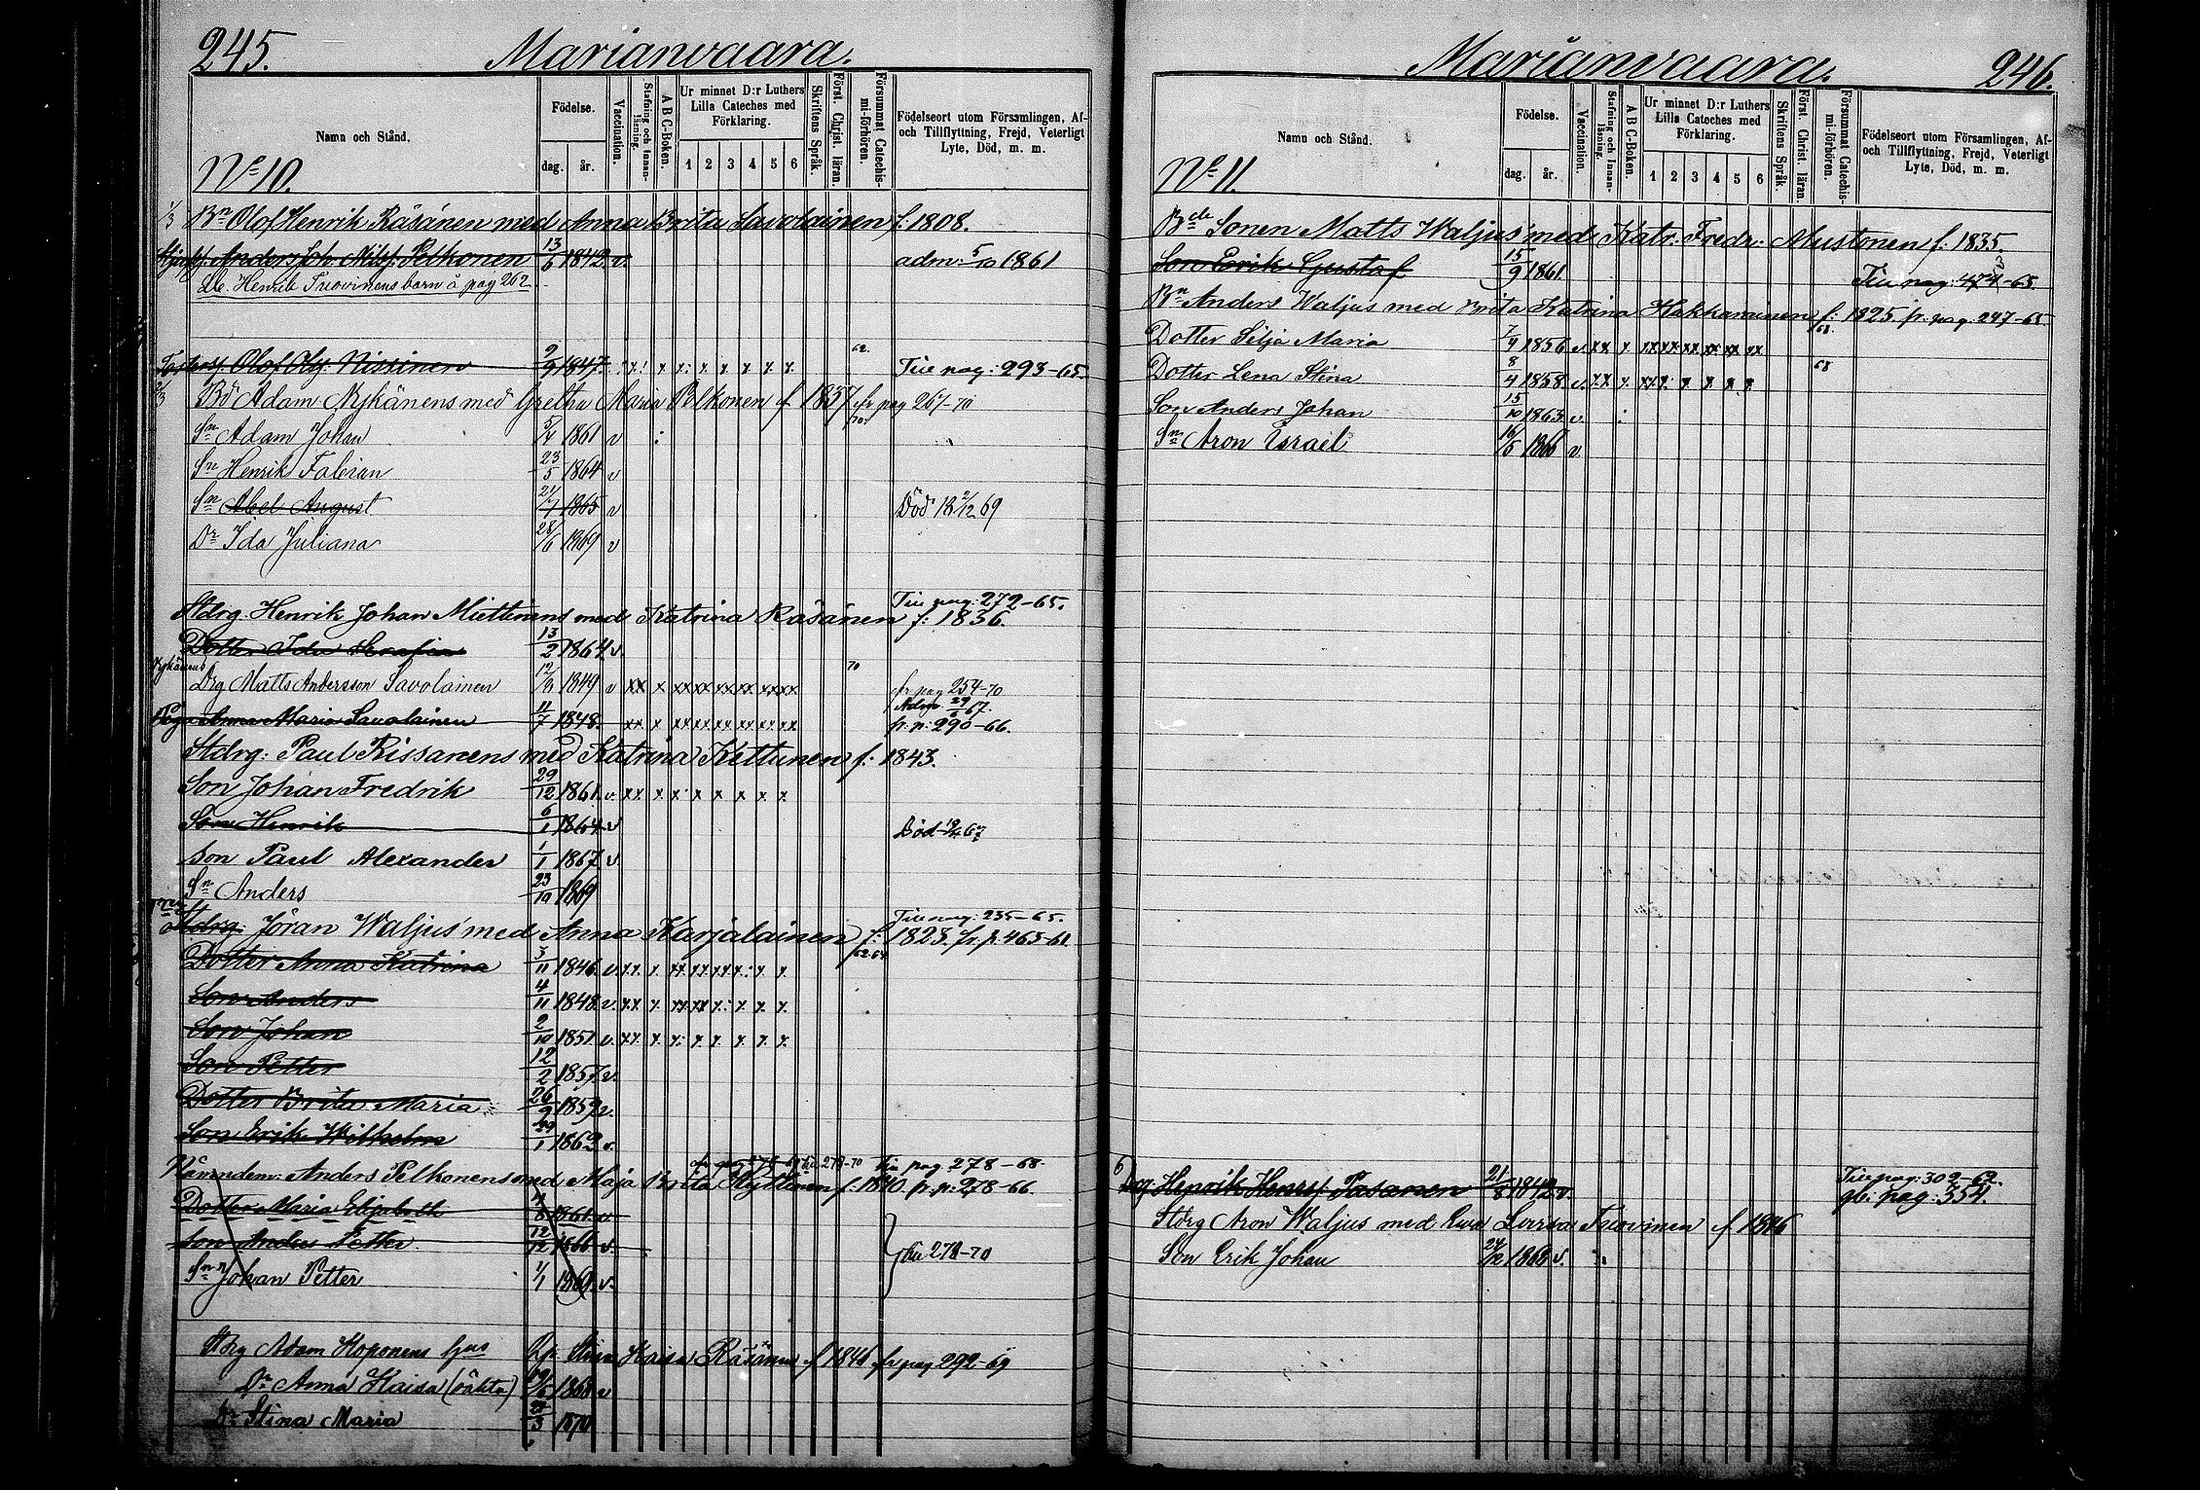 245. Marianvaara.
Namn och Stånd.
Födelse.
dag. år.
Vaccination.
Stafning och Innanläsning.
A B C-Boken.
Ur minnet D:r Luthers Lilla Cateches med Förklaring.
1 2 3 4 5 6
Skriftens Språk.
Först. Christ. läran.
Försummat Catechismi-förhören.
Födelseort utom Församlingen, Af- och Tillflyttning, Frejd, Veterligt Lyte, Död, m. m.
No 10.
1/3 Bn Olof Henrik Räsänen med Anna Brita Savolainen f: 1808.
Anders Joh. Nilss. Pelkonen 13/6 1842 v. adm: 5/10 1861
Henrik Tuovinens barn å pag 262
Olof Nissinen 2/9 1847 62. Till pag: 293-65.
2/3 Bd Adam Nykänens med Gretha Maria Pelkonen f 1837 fr pag 267-70
Sn Adam Johan 5/4 1861 v 70.
Sn Henrik Fabian 23/5 1864 v
Sn Abel August 21/7 1865 v Död 18 2/12 69
Dr Ida Juliana 28/6 1869 v
Till pag: 272-65.
Stdrg. Henrik Johan Miettinens med Katrina Räsänen f: 1836.
Dotter Ida Serafia 13/2 1864 v.
Nykänens
Drg Matts Andersson Savolainen 12/3 1849 v xx x xx xx xx xx xx xx 70 fr pag 254-70
Anna Maria Savolainen 11/7 1848. fr. p: 290-66.
Stdrg: Paul Rissanens med Katrina Kettunen f: 1843.
Son Johan Fredrik 29/12 1861 v. xx x x x x x x x
Son Henrik 6/1 1864 v Död 67
Son Paul Alexander 1/1 1867 v.
Sn Anders 23/10 1869
Till pag: 235-65.
Stdrg. Jöran Waljus med Anna Karjalainen f: 1823. fr. p: 463-61.
Dotter Anna Katrina 3/11 1846 v. 62.64.
Son Anders 4/11 1848 v.
Son Johan 2/10 1851 v.
Son Petter 12/2 1857 v.
Dotter Brita Maria 26/9 1859 v.
Son Erik Wilhelm 29/1 1862 v.
Till pag. 278-68.
Anders Pelkonens med Maja Brita Hyttinen f: 1840. fr. p: 278-66.
Dotter Maria Elisabeth 1861 v
Son Anders Petter 12/12 1866 v.
till 278-70
Sn Johan Petter 1/1 1869 v.
Stdrg Adam Koponens hus Stina Kaisa Räsänen f 1846 fr pag 292-69
Dr Anna Kaisa (oäkta) 1868 v
Dr Stina Maria 1870
Marianvaara. 246.
Namn och Stånd.
Födelse.
dag. år.
Vaccination.
Stafning och Innanläsning.
A B C-Boken.
Ur minnet D:r Luthers Lilla Cateches med Förklaring.
1 2 3 4 5 6
Skriftens Språk.
Först. Christ. läran
Försummat Catechismi-förhören.
Födelseort utom Församlingen, Af- och Tillflyttning, Frejd, Veterligt Lyte, Död, m. m.
No 11.
Bde Sonen Matts Waljus med Katr: Fredr: Mustonen f: 1835.
Son Erik Gustaf 15/9 1861. Till pag: 474-65.
Bn Anders Waljus med Brita Katrina Hakkarainen f: 1825. fr. pag. 247-65
Dotter Silja Maria 7/9 1856 v. xx x xx xx xx xx xx xx 68
Dotter Lena Stina 8/4 1858 v. 68
Son Anders Johan 15/10 1863 v.
Sn Aron Israel 16/5 1866 v
Drg Henrik Henrss. Pasanen 21/8 1842 v. Till pag: 309-62. gl: pag: 354.
Stdrg Aron Waljus med Eva Lovisa Tuovinen f 1846
Son Erik Johan 24/12 1868 v.